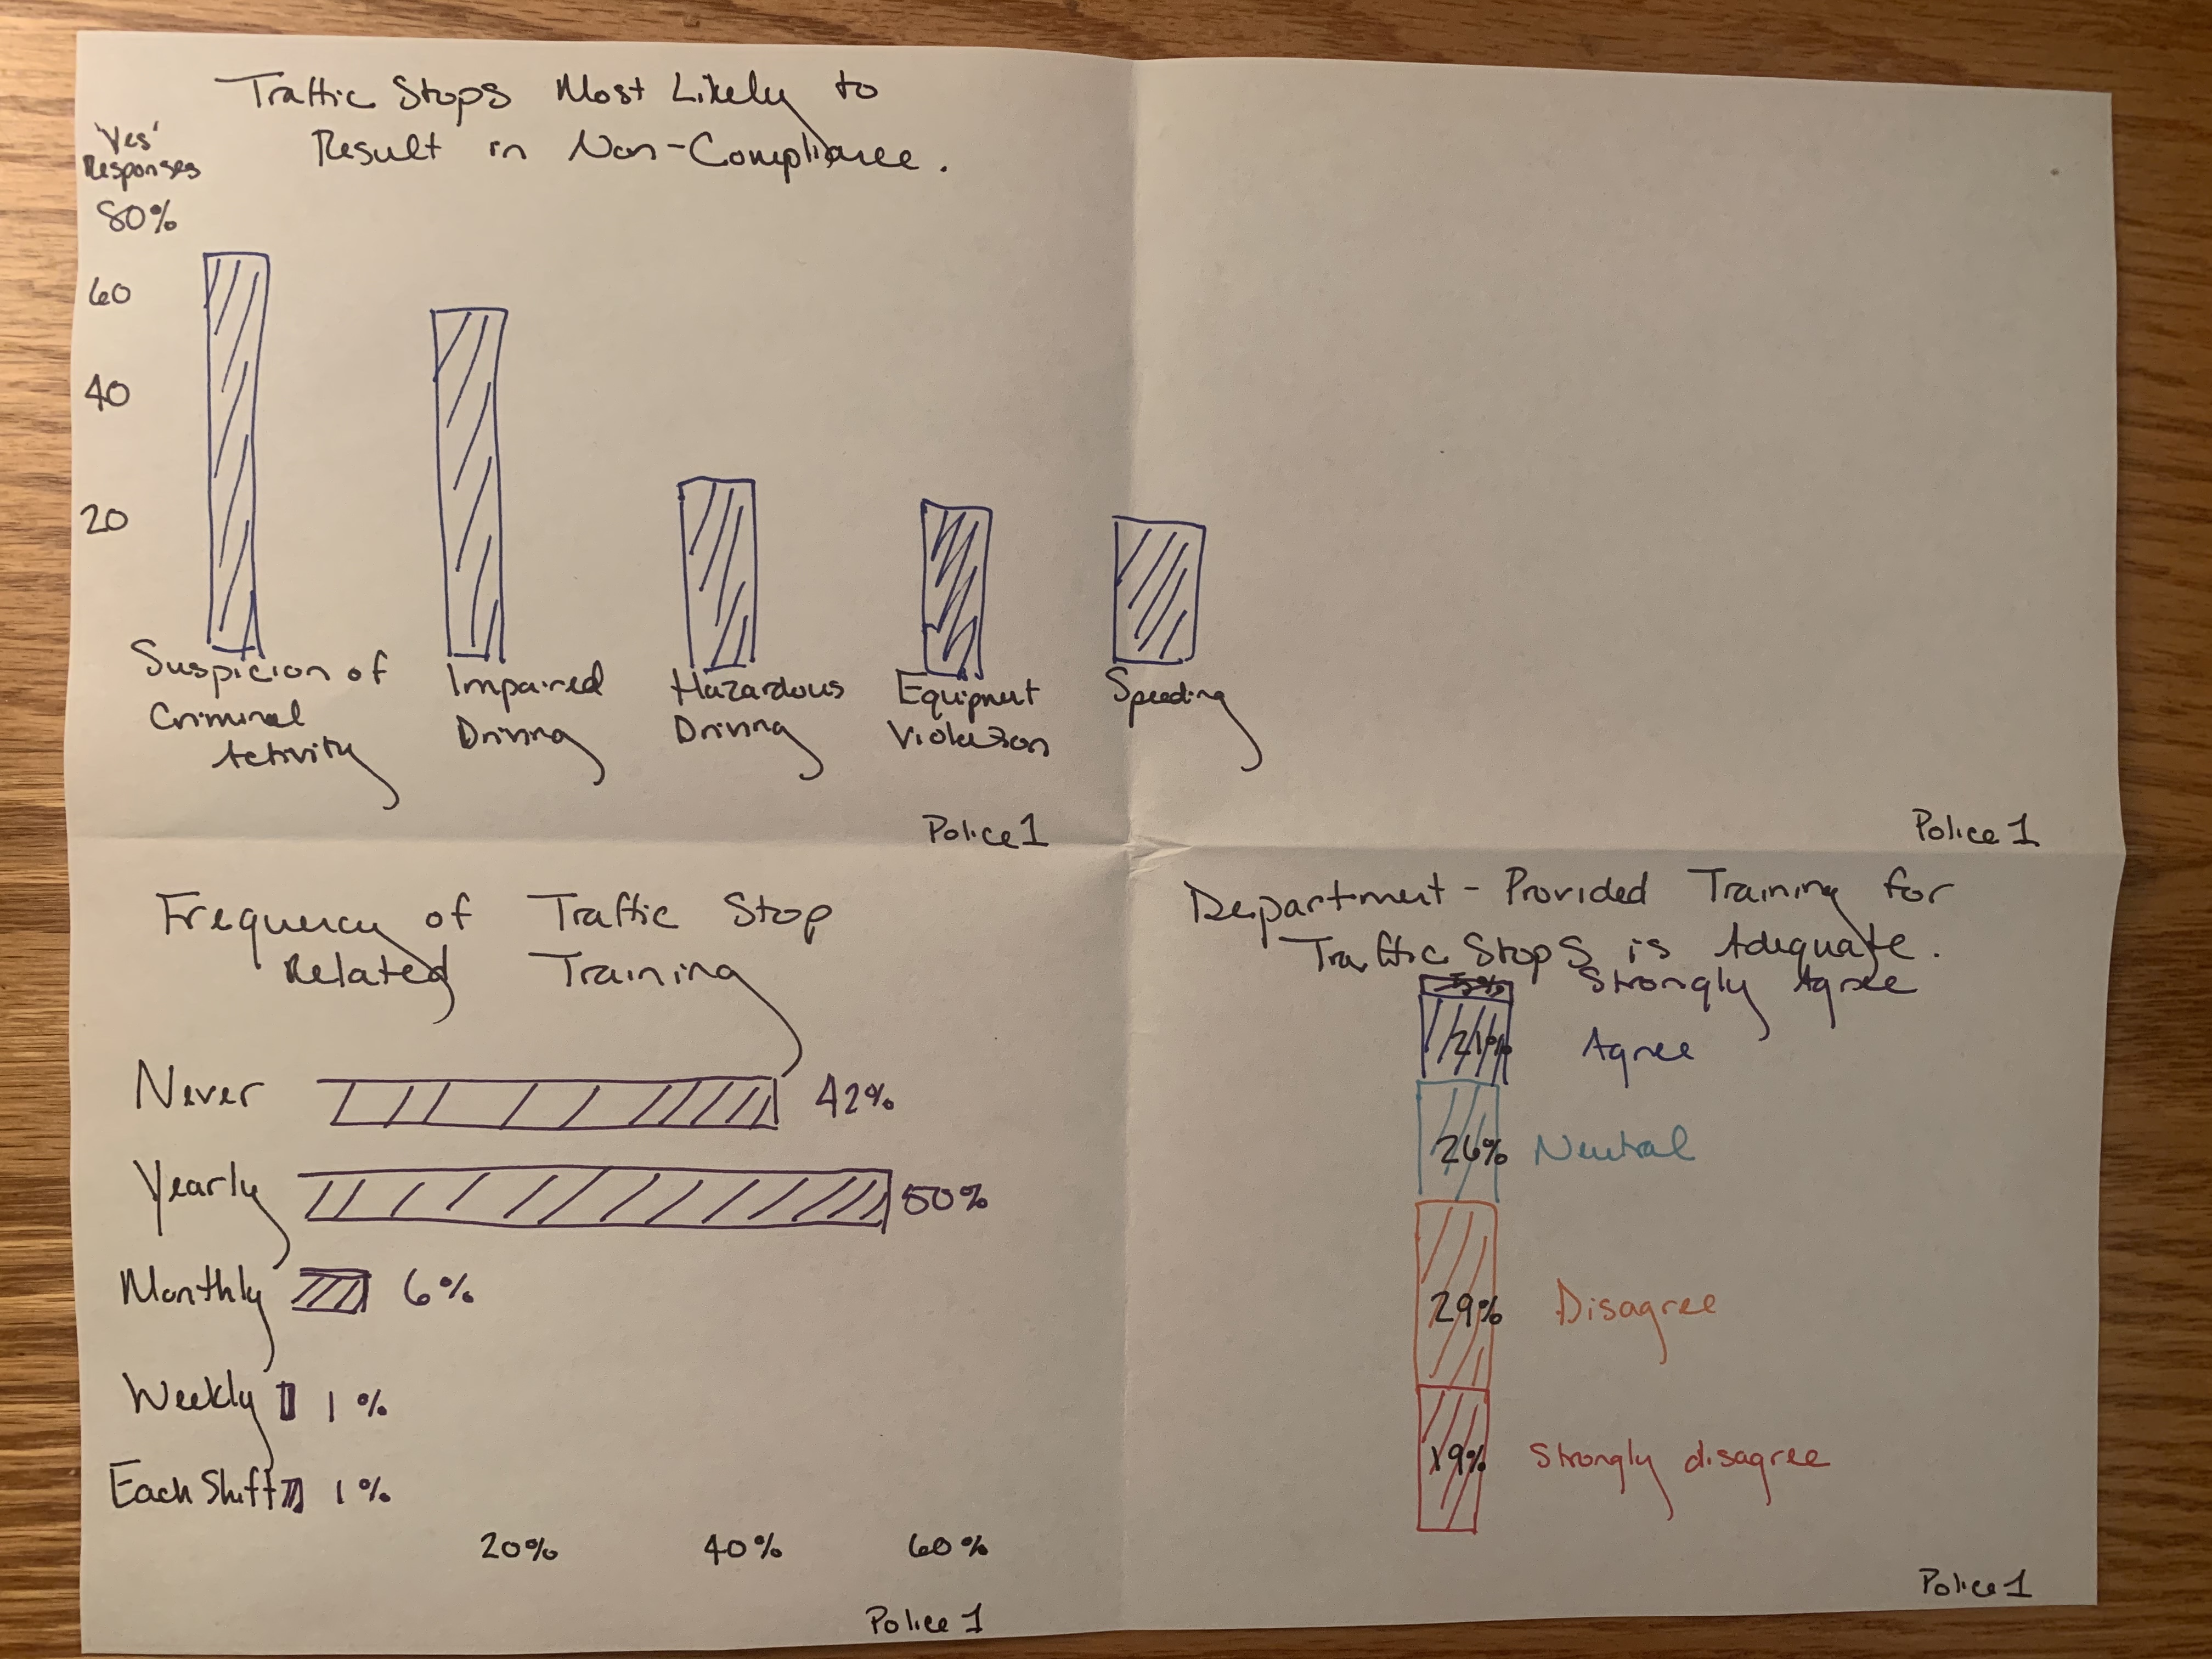 Traffic Stops Most Likely to
Result in Non-Compliance.
'Yes'
Responses
80%
60
40
20
Suspicion of
Criminal
Activity
Impaired
Driving
Hazardous
Driving
Equipment
Violation
Speeding
Police1
Police1
Frequency of Traffic Stop
Related Training
Never 42%
Yearly 50%
Monthly 6%
Weekly 1%
Each Shift 1%
20% 40% 60%
Police1
Department-Provided Training for
Traffic Stops is Adequate.
5% Strongly Agree
21% Agree
26% Neutral
29% Disagree
19% Strongly disagree
Police1